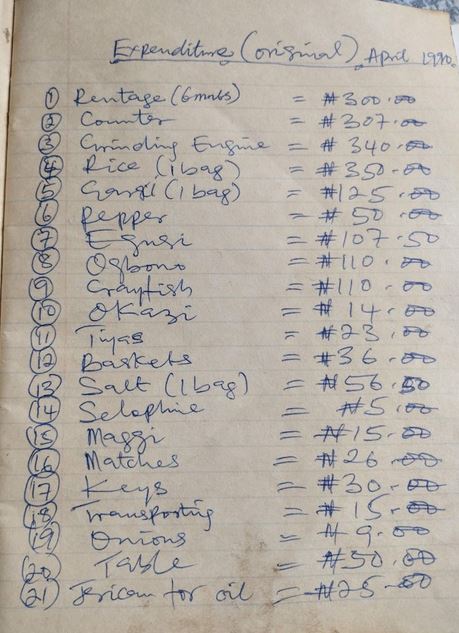 Expenditure (original) April 1990.
① Rentage (6mnths) = ₦300.00
② Counter = ₦307.00
③ Grinding Engine = ₦340.00
④ Rice (1bag) = ₦350.00
⑤ Garri (1bag) = ₦125.00
⑥ Pepper = ₦50.00
⑦ Egusi = ₦107.50
⑧ Ogbono = ₦110.00
⑨ Crayfish = ₦110.00
⑩ Okazi = ₦14.00
⑪ = ₦23.00
⑫ Baskets = ₦36.00
⑬ Salt (1bag) = ₦56.50
⑭ Selophine = ₦5.00
⑮ Maggi = ₦15.00
⑯ Matches = ₦26.00
⑰ Keys = ₦30.00
⑱ Transporting = ₦15.00
⑲ Onions = ₦9.00
⑳ Table = ₦50.00
㉑ Jericam for oil = ₦25.00